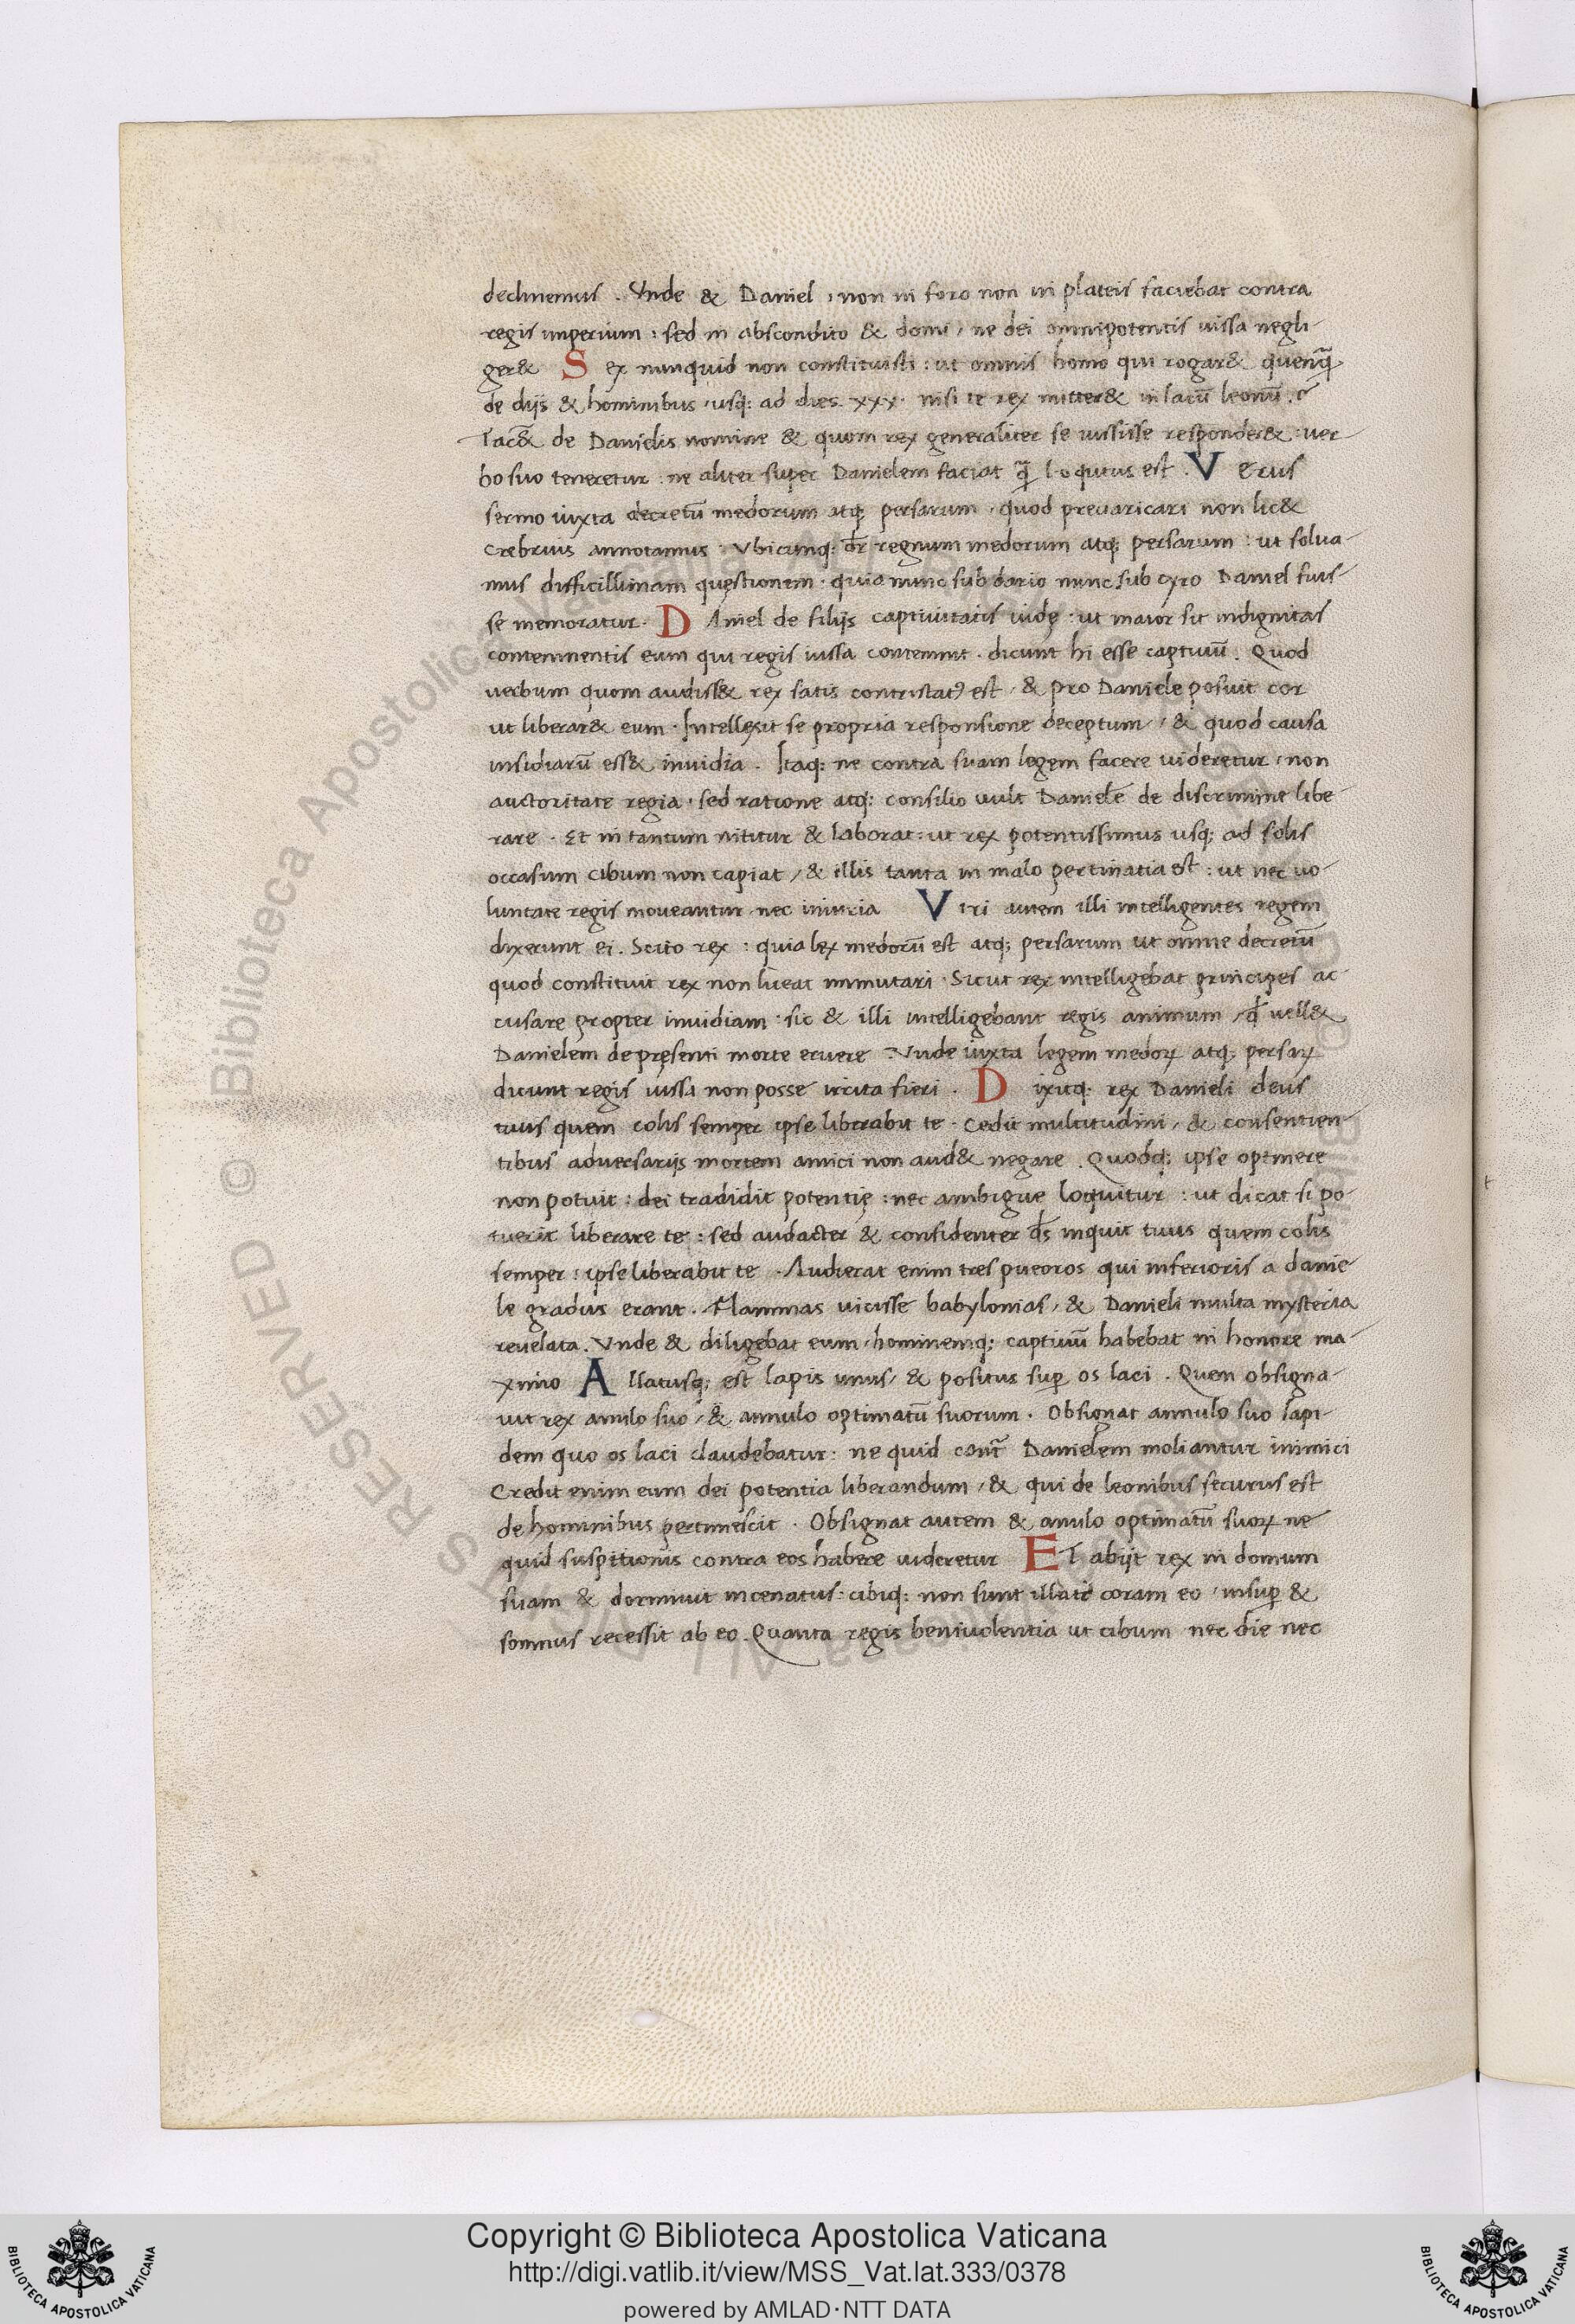 declinemus . Vnde & Daniel , non in foro non in plateis faciebat contra
regis imperium : sed in abscondito & domi , ne dei omnipotentis iussa negli-
ger& S ex nunquid non constituisti : ut omnis homo qui rogar& quenq̃
de dijs & hominibus , usq; ad dies xxx . nisi te rex mitter& in lacũ leonũ .
Tac& de Danielis nomine & quom rex generaliter se iussisse responder& : ver
bo suo teneretur : ne aliter super Danielem faciat q̃ loqutus est . V erus
sermo iuxta decretũ medorum atq; persarum . quod prevaricari non lic&
Crebrius annotamus : Vbicunq; dr̃ regnum medorum atq; persarum : ut solva-
mus difficillimam quęstionem . quia nunc sub dario nunc sub cyro Daniel fuis-
se memoratur . D Aniel de filijs captivitatis iudę : ut maior sit indignitas
contemnentis eum qui regis iussa contemnit . dicunt hi esse captiuũ . Quod
verbum quom audiss& rex satis contristatꝰ est , & pro Daniele posuit cor
ut liberar& eum . Intellexit se propria responsione deceptum , & quod causa
insidiarũ ess& invidia . Itaq; ne contra suam legem facere videretur , non
auctoritate regia . sed ratione atq; consilio vult Danielẽ de discrimine libe-
rare . Et in tantum nititur & laborat : ut rex potentissimus usq; ad solis
occasum cibum non capiat , & illis tanta in malo pertinatia est : ut nec vo-
luntate regis moveantur nec iniuria V iri autem illi intelligentes regem
dixerunt ei . Scito rex : quia lex medorũ est atq; persarum ut omne decretũ
quod constituit rex non liceat immutari . Sicut rex intelligebat principes ac-
cusare propter invidiam : sic & illi intelligebant regis animum , qđ vell&
Danielem de pręsenti morte eruere . Vnde iuxta legem medoꝝ atq; persaꝝ
dicunt regis iussa non posse irrita fieri . D ixitq; rex Danieli deus
tuus quem colis semper ipse liberabit te . Cedit multitudini , & consentien-
tibus adversarijs mortem amici non aud& negare . Quodq; ipse optinere
non potuit : dei tradidit potentię : nec ambigue loquitur : ut dicat si po-
tuerit liberare te : sed audacter & confidenter d̃s inquit tuus quem colis
semper : ipse liberabit te . Audierat enim tres pueoros qui inferioris a danie-
le gradus erant . Flammas vicisse babylonias , & Danieli multa mysteria
revelata . Vnde & diligebat eum , hominemq; captiuũ habebat in honore ma-
ximo A llatusq; est lapis unus , & positus suꝑ os laci . Quen obsigna-
uit rex anulo suo , & annulo optimatũ suorum . Obsignat annulo suo lapi-
dem quo os laci claudebatur : ne quid cont̃ Danielem moliantur inimici
Credit enim eum dei potentia liberandum , & qui de leonibus securus est
de hominibus pertimescit . Obsignat autem & anulo optimatũ suoꝝ ne
quid suspitionis contra eos habere videretur ET abijt rex in domum
suam & dormivit incenatus . cibiq; non sunt illati coram eo , insuꝑ &
somnus recessit ab eo . Quanta regis benivolentia ut cibum nec die nec
Copyright © Biblioteca Apostolica Vaticana
http://digi.vatlib.it/view/MSS_Vat.lat.333/0378
powered by AMLAD·NTT DATA